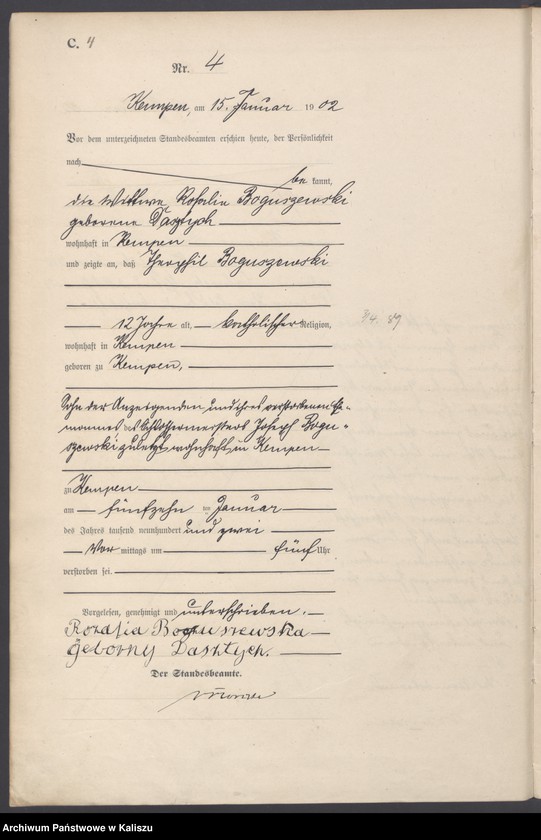 C. 4
Nr. 4
Kempen, am 15. Januar 1902
Vor dem unterzeichneten Standesbeamten erschien heute, der Persönlichkeit
nach
be kannt,
die Wittwe Rosalie Boguszewski
geborene Dasztych
wohnhaft in Kempen
und zeigte an, daß Theophil Boguszewski
12 Jahre alt, katholischer Religion,
wohnhaft in Kempen
geboren zu Kempen,
Sohn der Anzeigenden und ihres verstorbenen Ehe-
mannes des Joseph Bogu-
szewski zuletzt wohnhaft in Kempen
zu Kempen
am fünfzehn ten Januar
des Jahres tausend neunhundert und zwei
Vor mittags um fünf Uhr
verstorben sei.
Vorgelesen, genehmigt und unterschrieben.
Rozalia Boguszewska
geborny Dasztych.
Der Standesbeamte.
Archiwum Państwowe w Kaliszu